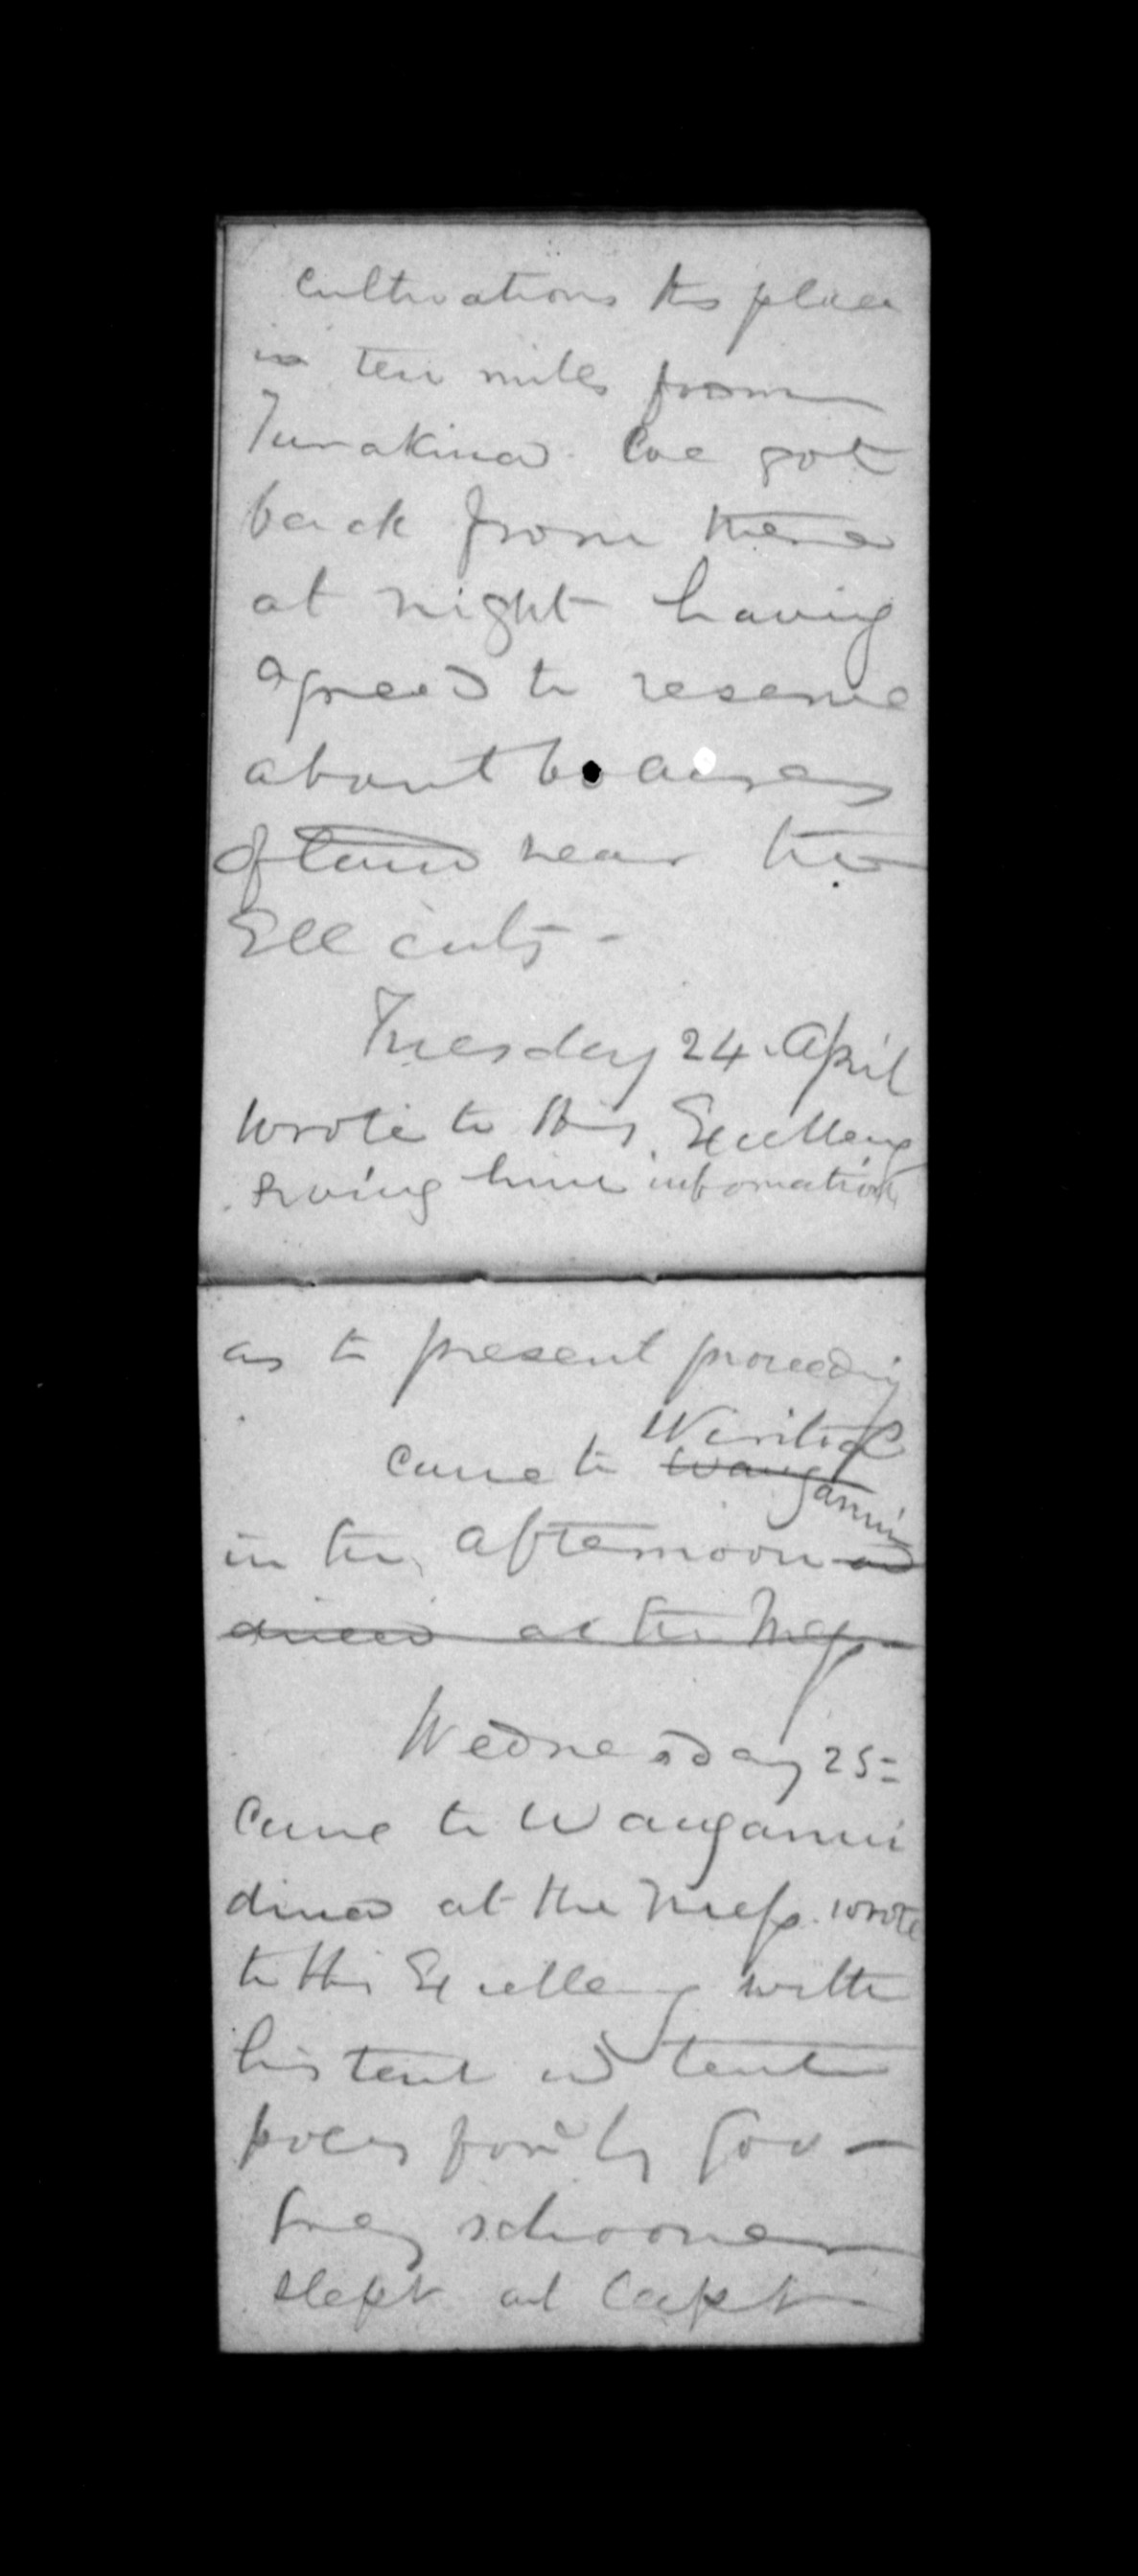 cultivations this place
is ten miles from
Turakina. We got
back from there
at night having
agreed to reserve
about 60 acres
of land near the
Eel cuts -
Tuesday 24. April
Wrote to His Excellency
giving him information
as to present proceeding
Wiritoa
came to Wanganui
in the afternoon and
dined at the Mess
Wednesday 25=
Came to Wanganui
dined at the Mess. wrote
to His Excellency with
his tent and tent
poles for by Gov -
Grey schooner
slept at Capt